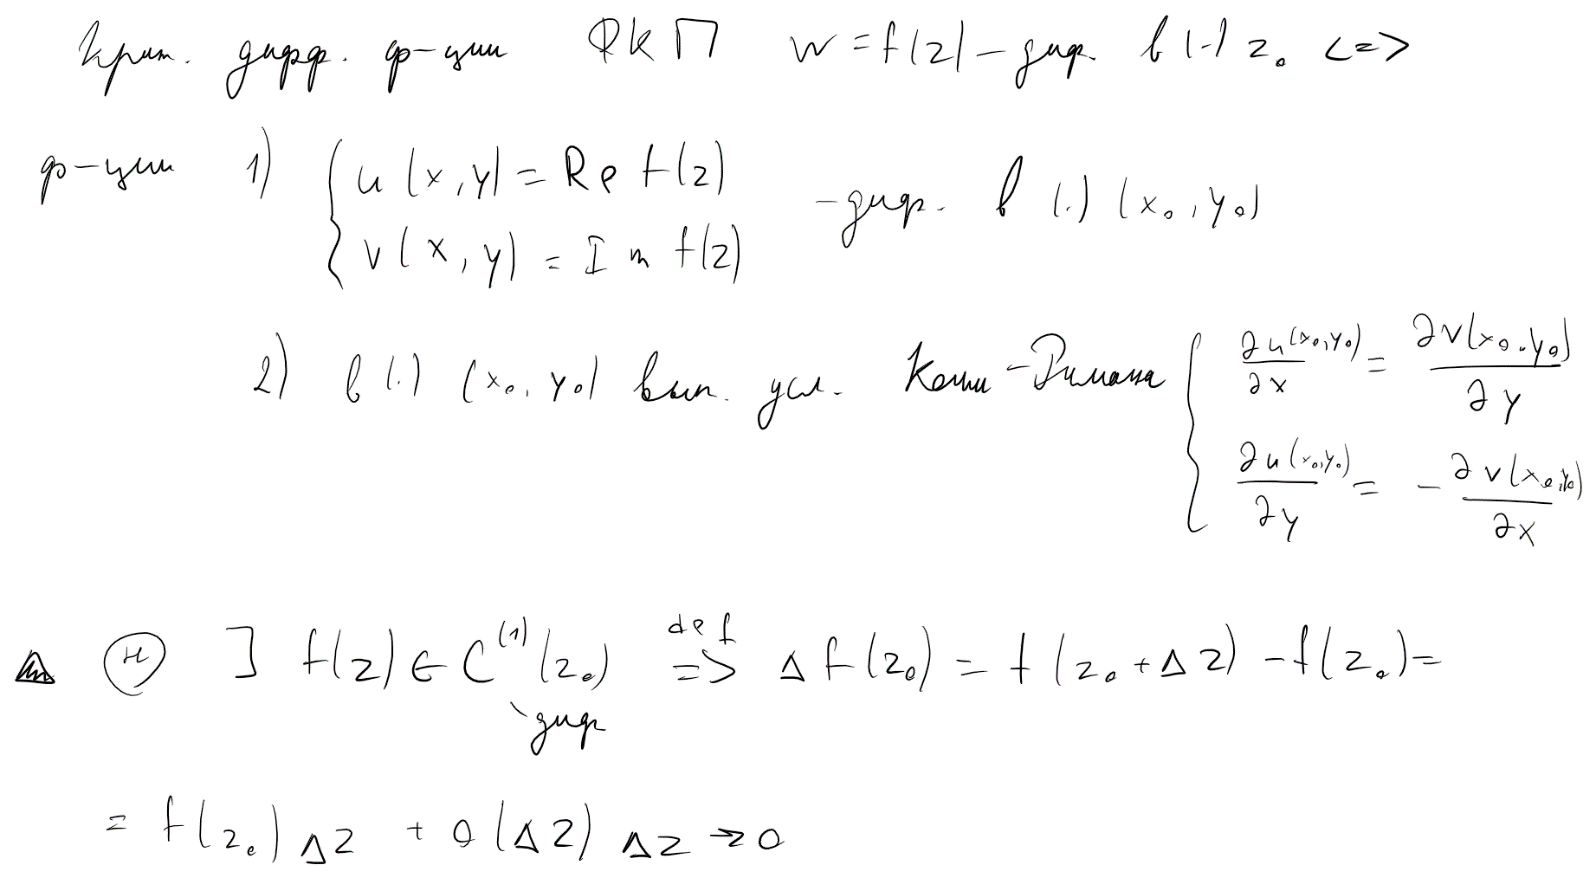 Крит. дифф. ф-ции ФКП w = f(z) – диф. в (·) z₀ <=>
ф-ции 1) { u(x,y) = Re f(z)
v(x,y) = Im f(z) – диф. в (·) (x₀, y₀)
2) в (·) (x₀, y₀) вып. усл. Коши-Римана { ∂u(x₀,y₀)/∂x = ∂v(x₀,y₀)/∂y
∂u(x₀,y₀)/∂y = - ∂v(x₀,y₀)/∂x
▲ (H) ] f(z) ∈ C⁽¹⁾(z₀) def => Δf(z₀) = f(z₀ + Δz) - f(z₀) =
диф
= f(z₀)Δz + o(Δz) Δz → 0